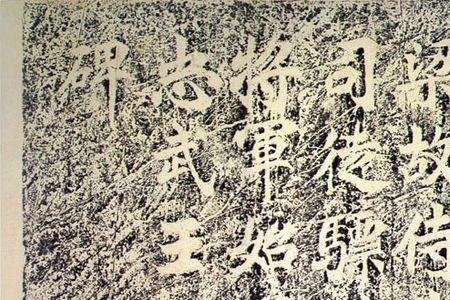 梁故侍
司徒驃
将軍始
忠武王
碑